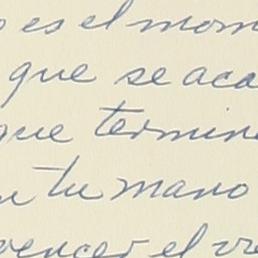 es el mom
que se aca
que termin
tu mano
vencer el vie